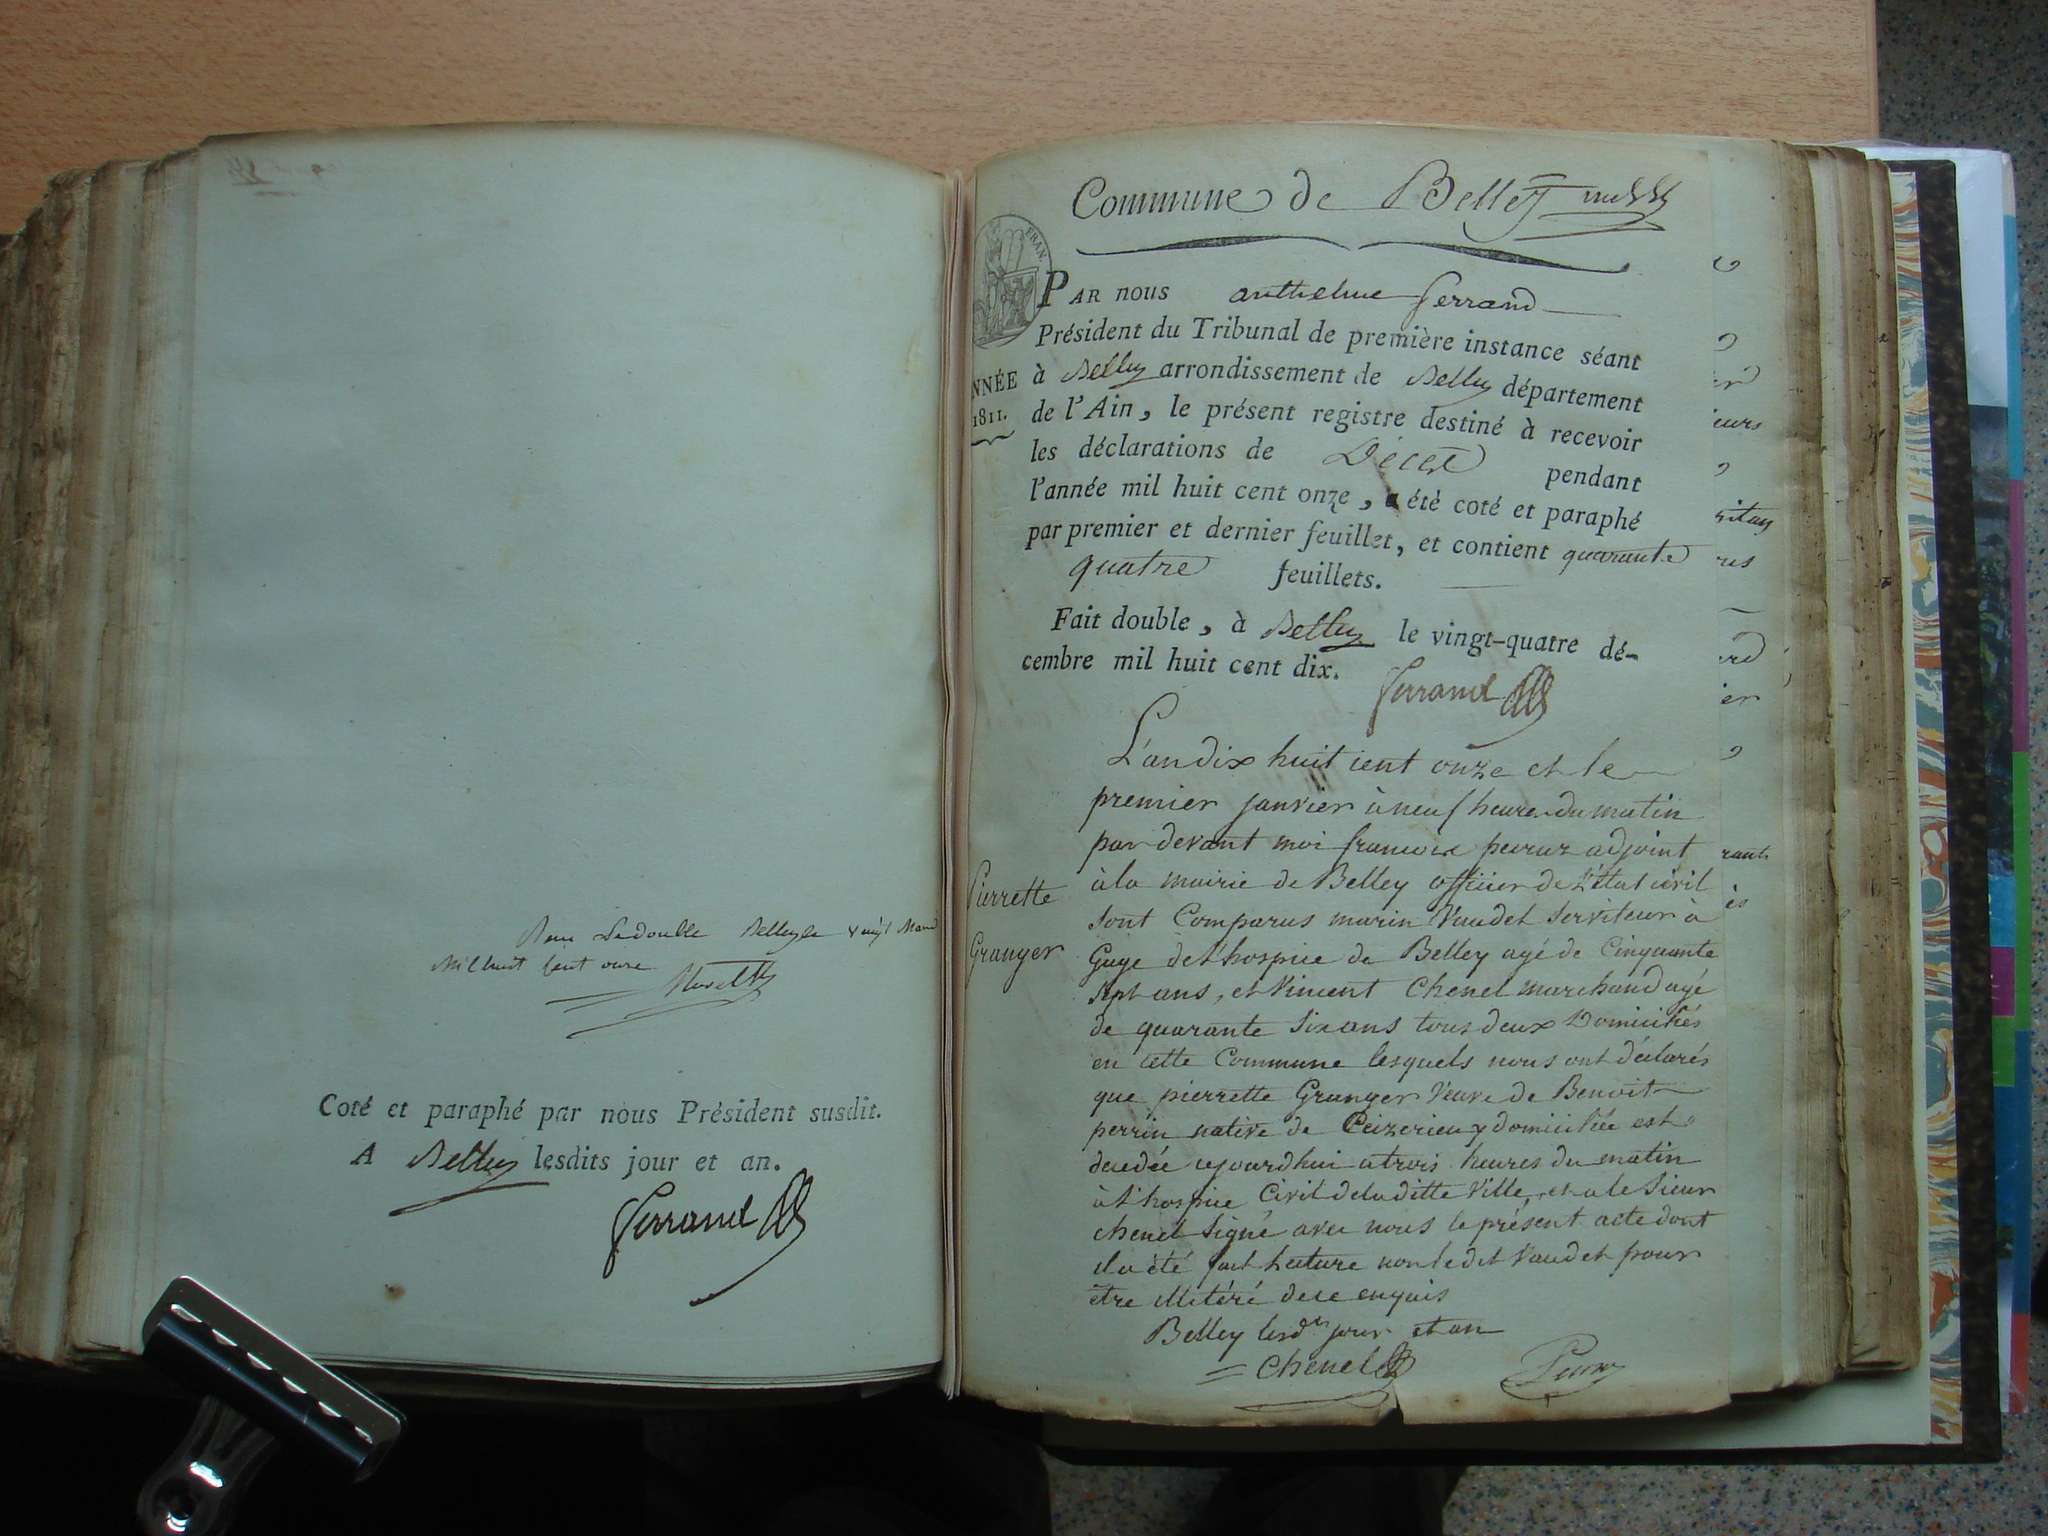 Vu le double Belley le vingt
Mil huit cent onze
Coté et paraphé par nous Président susdit.
A Belley lesdits jour et an.
Ferrand
Commune de Belley
FRAN.
PAR nous anthelme ferrand
Président du Tribunal de première instance séant
à Belley arrondissement de Belley département
NNÉE
1811.
de l'Ain, le présent registre destiné à recevoir
les déclarations de Décès pendant
l'année mil huit cent onze, a été coté et paraphé
par premier et dernier feuillet, et contient quarante
quatre feuillets.
Fait double, à Belley le vingt-quatre dé-
cembre mil huit cent dix.
Ferrand
L'an dix huit cent onze et le
premier janvier à neuf heures du matin
par devant moi francois adjoint
à la mairie de Belley officier de l'état civil
Pierrette
Granger
sont Comparus marin Vaudet serviteur à
Gage de l'hospice de Belley agé de Cinquante
sept ans, et Vincent Chenel marchand agé
de quarante six ans tous deux Domiciliés
en cette Commune lesquels nous ont déclarés
que pierrette Granger Veuve de Benoit
perrin native de Ceizerieu y domiciliée est
decedée cejourdhui a trois heures du matin
à l'hospice Civil de laditte Ville, et a le sieur
chenel signé avec nous le présent acte dont
il a été fait lecture non ledit Vaudet pour
être illitéré de ce enquis
Belley lesdts jour et an
Chenel